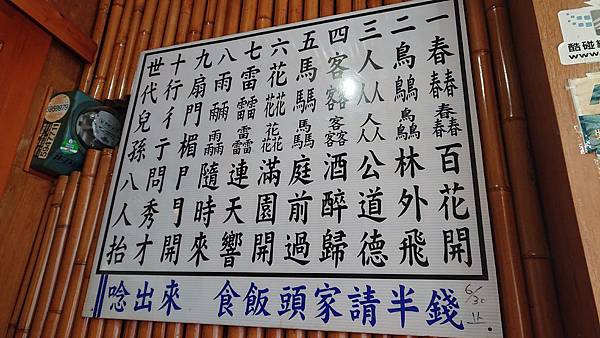 一春春春春春春百花開
二鳥鳥鳥鳥鳥鳥林外飛
三人人人人人人公道德
四客客客客客客客酒醉歸
五馬馬馬馬馬馬馬庭前過
六花花花花花花花滿園開
七雷雷雷雷雷雷雷連天響
八雨雨雨雨雨雨隨時來
九扇門楣門開
十行彳亍問秀才
世代兒孫八人抬
唸出來 食飯頭家請半錢
6/30
止.
酷碰